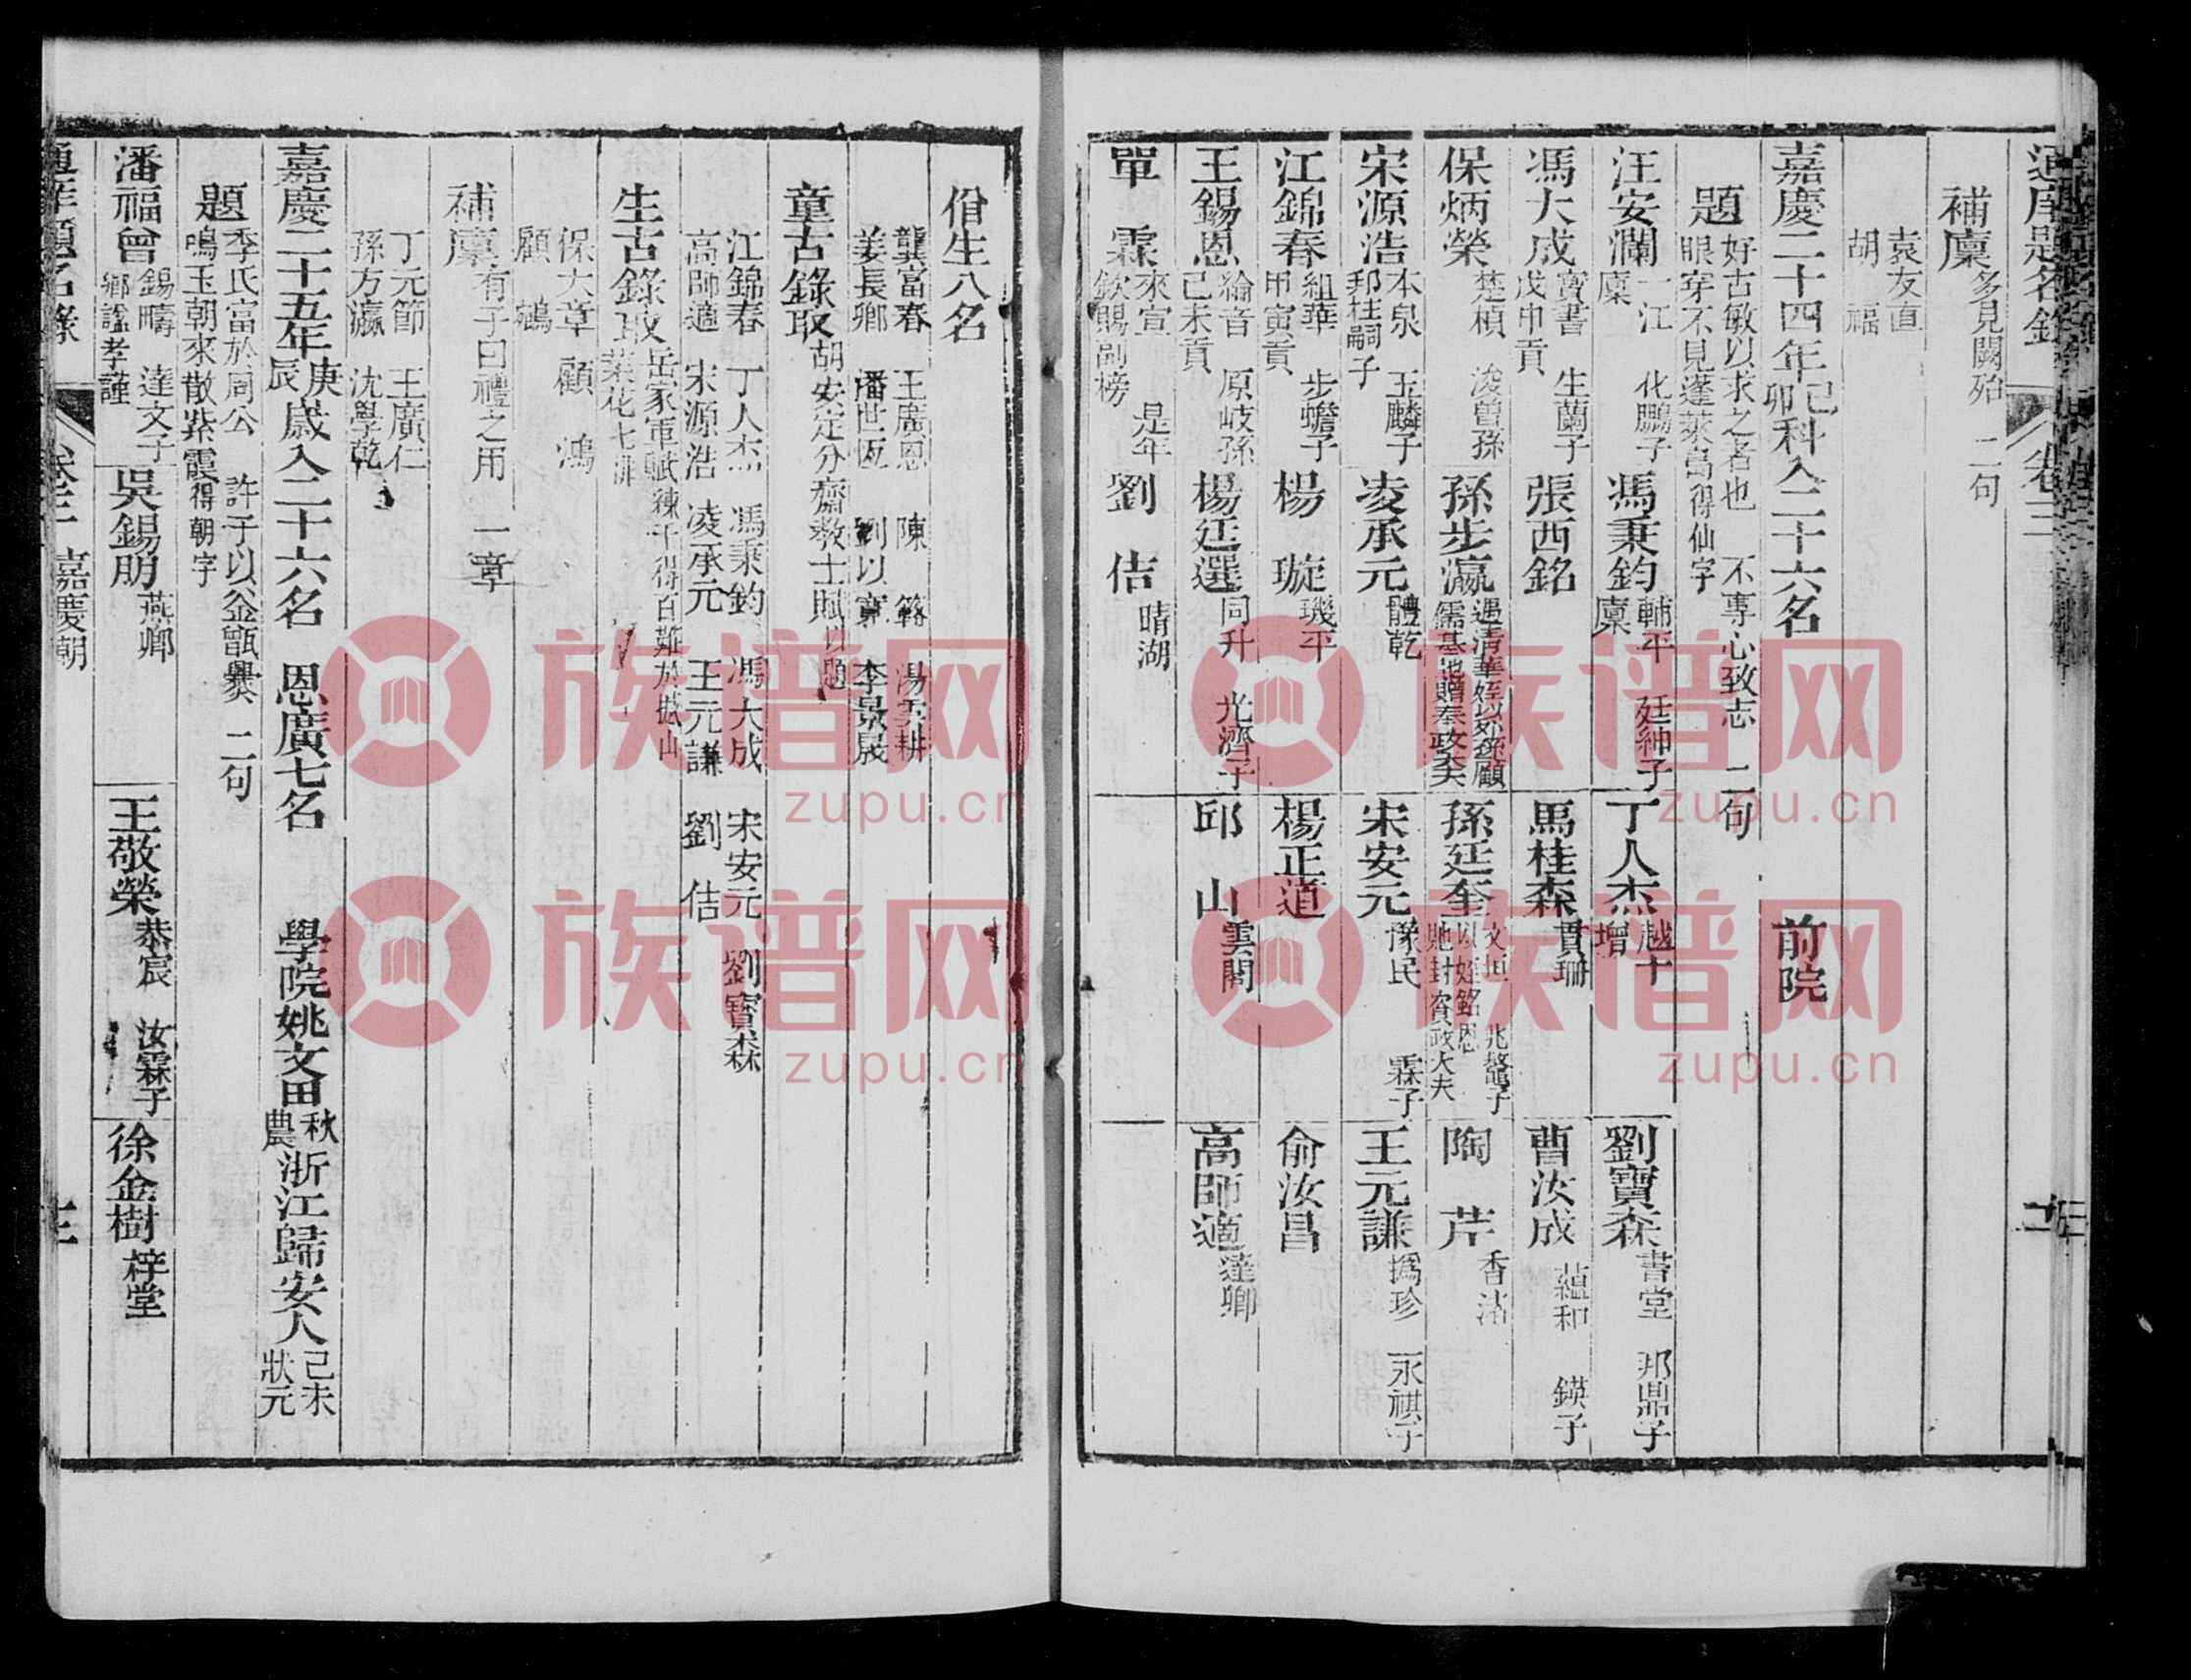 通庠題名錄 卷三
補廩 多見闕殆 二句
袁友直
胡 福
嘉慶二十四年己卯科入二十六名 前院
題 好古敏以求之者也 不專心致志 二句
眼穿不見蓬萊島得仙字
汪安瀾 一江 化鵬子 廩 馮秉鈞 輔平 廷紳子 廩 丁人杰 越十 增 劉寶森 書堂 邦鼎子
馮大成 寶書 生蘭子 戊申貢 張西銘 馬桂森 貫珊 曹汝成 蘊和 鍈子
保炳榮 楚楨 浚曾孫 孫步瀛 遇清華姪以外孫顧儒基貤贈奉政大夫 孫廷奎 文垣 兆鰲子 以姪銘恩貤封資政大夫 陶 芹 香沽
宋源浩 本泉 玉麟子 邦桂嗣子 凌承元 體乾 宋安元 豫民 霖子 王元謙 撝珍 永祺子
江錦春 組華 步蟾子 甲寅貢 楊 璇 璣平 楊正道 俞汝昌
王錫恩 綸音 原岐孫 己未貢 楊廷選 同升 光濟子 邱 山 雲閣 高師適 達卿
單 霖 來宣 是年欽賜副榜 劉 佶 晴湖
佾生八名
龔富春 王廣恩 陳 簬 湯雲耕
姜長卿 潘世恆 劉以寬 李景晟
童古錄取 胡安定分齋教士賦以題
江錦春 丁人杰 馮秉鈞 馮大成 宋安元 劉寶森
高師適 宋源浩 凌承元 王元謙 劉 佶
生古錄取 岳家軍賦 練千得百難於撼山
菜花七排
保大章 顧 鴻
顧 鵷
補廩 有子曰禮之用 一章
丁元節 王廣仁
孫方瀛 沈學乾
嘉慶二十五年庚辰歲入二十六名 恩廣七名 學院姚文田 秋農 浙江歸安人 己未狀元
題 季氏富於周公 許子以釜甑爨 二句
鳴玉朝來散紫霞得朝字
潘福曾 錫疇 達文子 鄉謚孝謹 吳錫朋 燕鄉 王敬榮 恭宸 汝霖子 徐金樹 梓堂
通庠題名錄 卷三 嘉慶朝